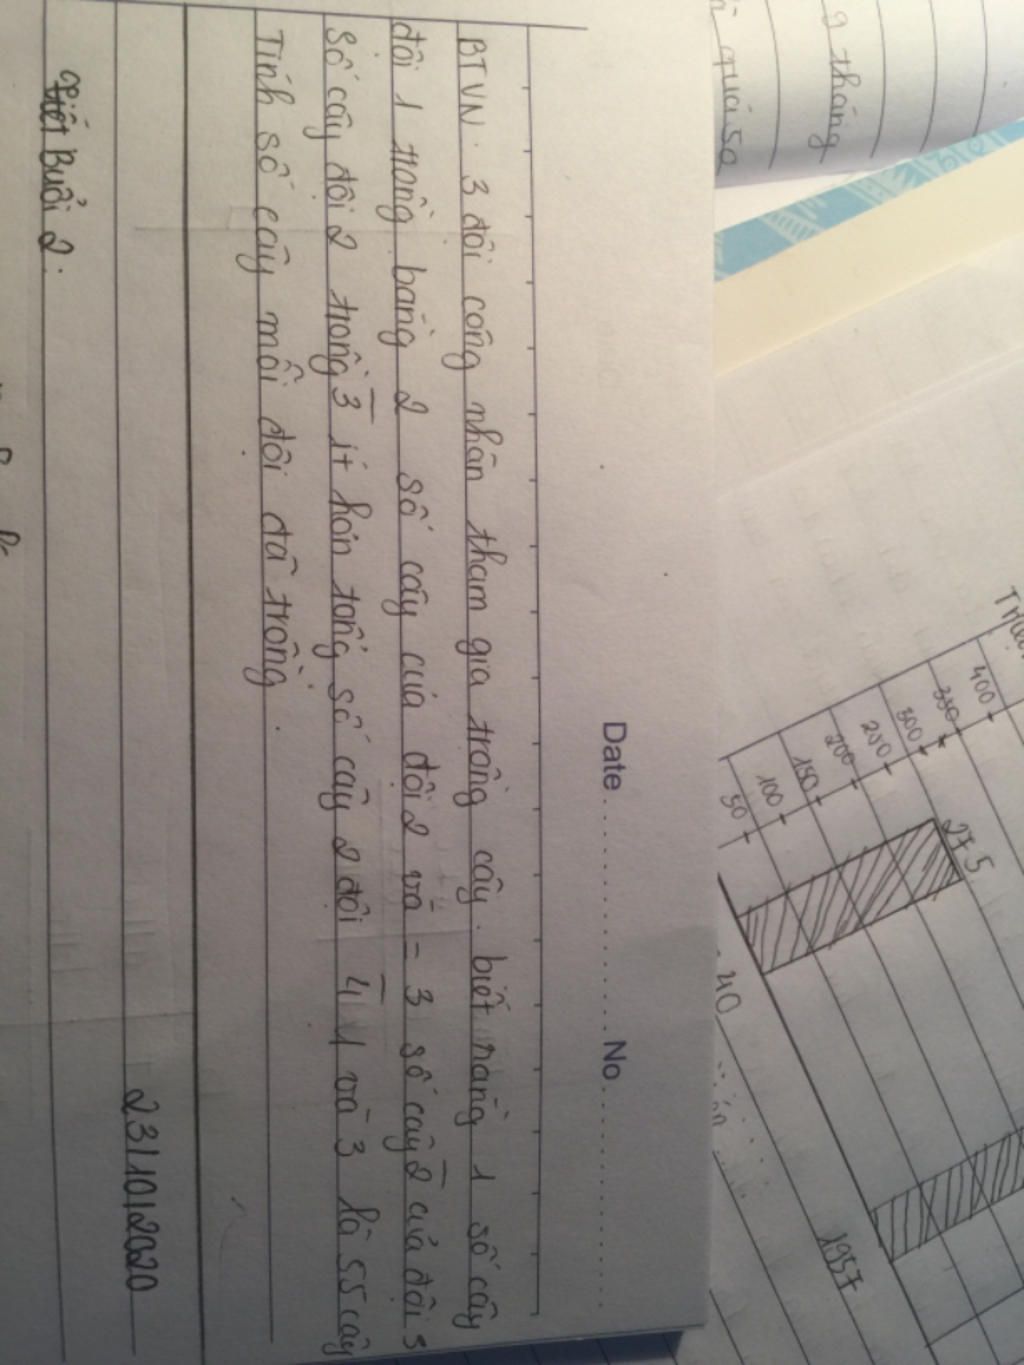 Date.....................No....................
BTVN. 3 đội công nhân tham gia trồng cây. biết rằng 1 số cây
đội 1 trồng bằng 2 số cây của đội 2 và = 3 số cây 2 của đội 3
số cây đội 2 trồng 3 ít hơn tổng số cây 2 đội 4 1 và 3 là 55 cây
Tính số cây mỗi đội đã trồng.
23/10/2020
Tiết Buổi 2:
9 tháng
quá 50
400
350
300
250
200
150
100
50
275
40
1957